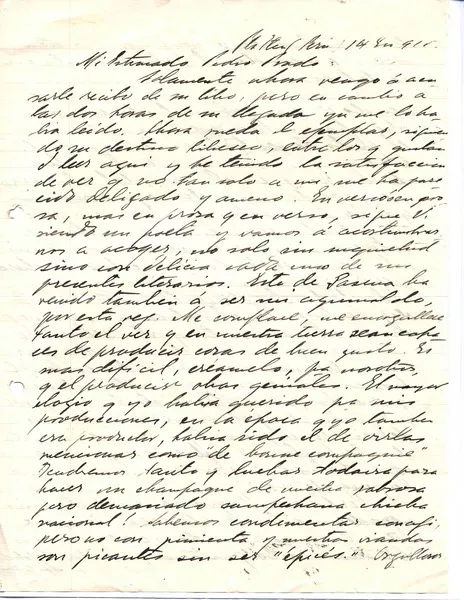 14 En 915.
Mi Estimado Pedro Prado:
Solamente ahora vengo á acu
sarle recibo de su libro, pero en cambio á
las dos horas de su llegada ya me lo ha
bía leído. Ahora rueda el ejemplar, siguien
do su destino, entre los q gustan
d leer aquí y he tenido la satisfaccion
de ver q no tan solo a mí me ha pare
cido delicado y ameno. En verso ó en pro
sa, mas en prosa q en verso, sigue V.
siendo un poeta y vamos á acostumbrar
nos a acoger, no solo sin inquietud
sino con delicia cada uno de sus
presentes literarios. Este de Pascua ha
venido tambien á ser un aguinaldo,
por esta vez. Me complace, me enorgullece
tanto el ver q en nuestra tierra sean capa
ces de producir cosas de buen gusto. Es
mas difícil, créamelo, pa nosotros,
q el producir obras geniales. El mayor
elogio q yo habia querido pa mis
producciones, en la época q yo tambien
era productor, habria sido el de oirlas
mencionar como "de bonne compagnie"
Tendremos tanto q luchar todavia para
hacer un champagne de nuestra sabrosa
pero demasiado campechana chicha
nacional! Sabemos condimentar con ají
pero no con pimienta y nuestras viandas
son picantes sin ser "épicés". Orgulloso